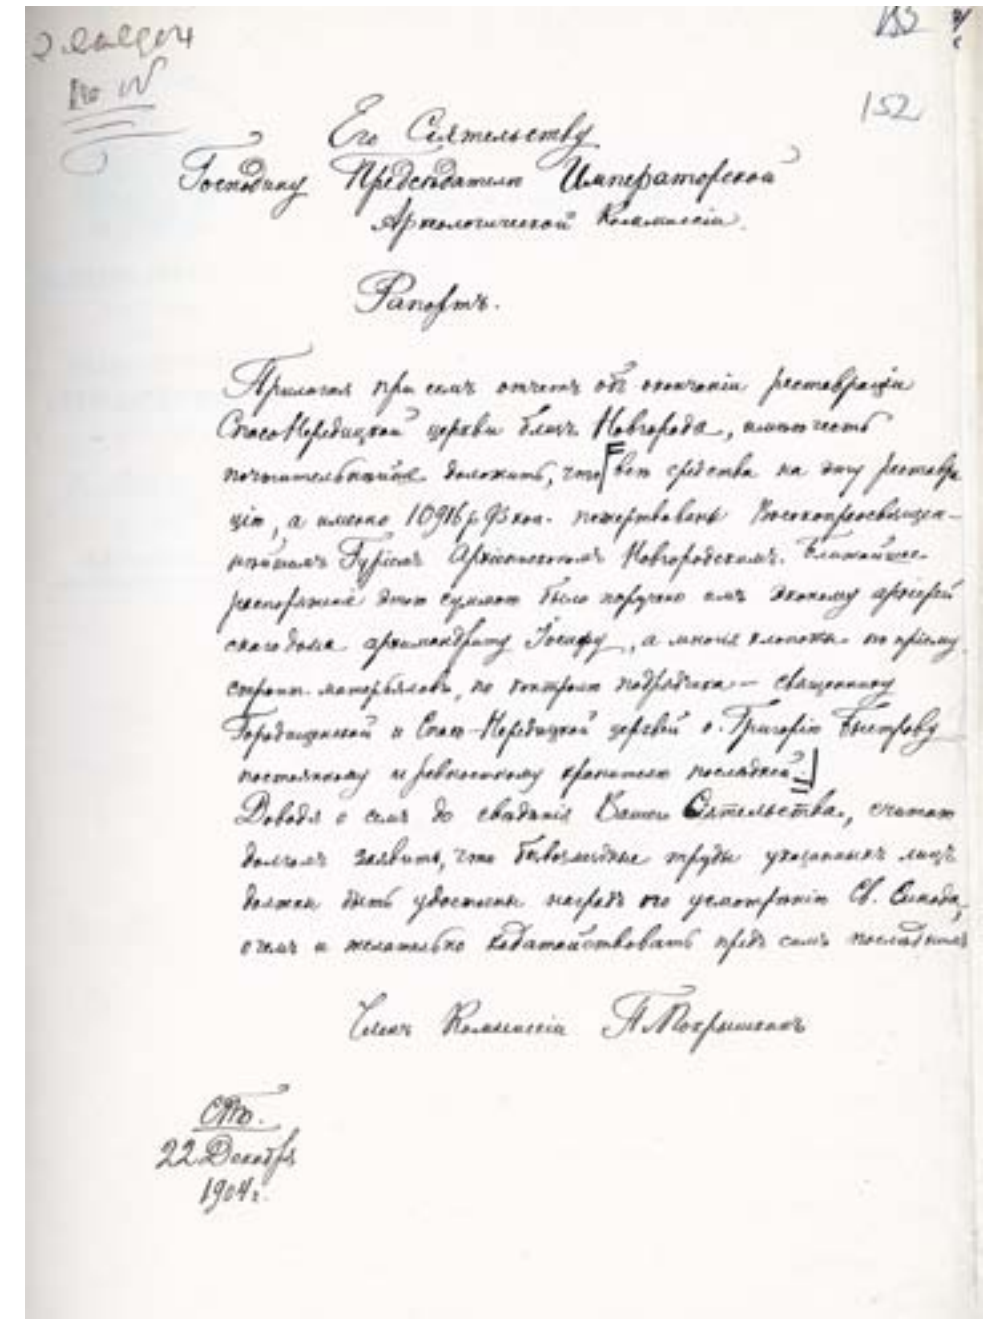 152
Его Сіятельству
Господину Предсѣдателю Императорской
Археологической Коммиссіи.
Рапортъ.
Прилагая при семъ отчетъ объ окончаніи реставраціи
Спасо Нередицкой церкви близъ Новгорода, имѣю честь
почтительнѣйше доложить, что всѣ средства на эту реставра
цію, а именно 10916 р. 93 коп. пожертвованы Высокопреосвящен-
нѣйшимъ Гуріемъ Архіепископомъ Новгородскимъ. Ближайшее
распоряженіе этою суммою было поручено имъ эконому архіерей
скаго дома архимандриту Іосифу, а многія хлопоты по пріему
строит. матерьяловъ, по контролю подрядчика — священнику
Городищенской и Спасо-Нередицкой церквей о. Григорію Быстрову
постоянному и ревностному хранителю послѣдней.
Доводя о семъ до свѣдѣнія Вашего Сіятельства, считаю
долгомъ заявить, что безвозмездные труды указанныхъ лицъ
должны быть удостоены наградъ по усмотрѣнію Св. Синода,
о чемъ и желательно ходатайствовать предъ симъ послѣднимъ
Членъ Коммиссіи П. Покрышкинъ
СПб.
22 Декабря
1904 г.